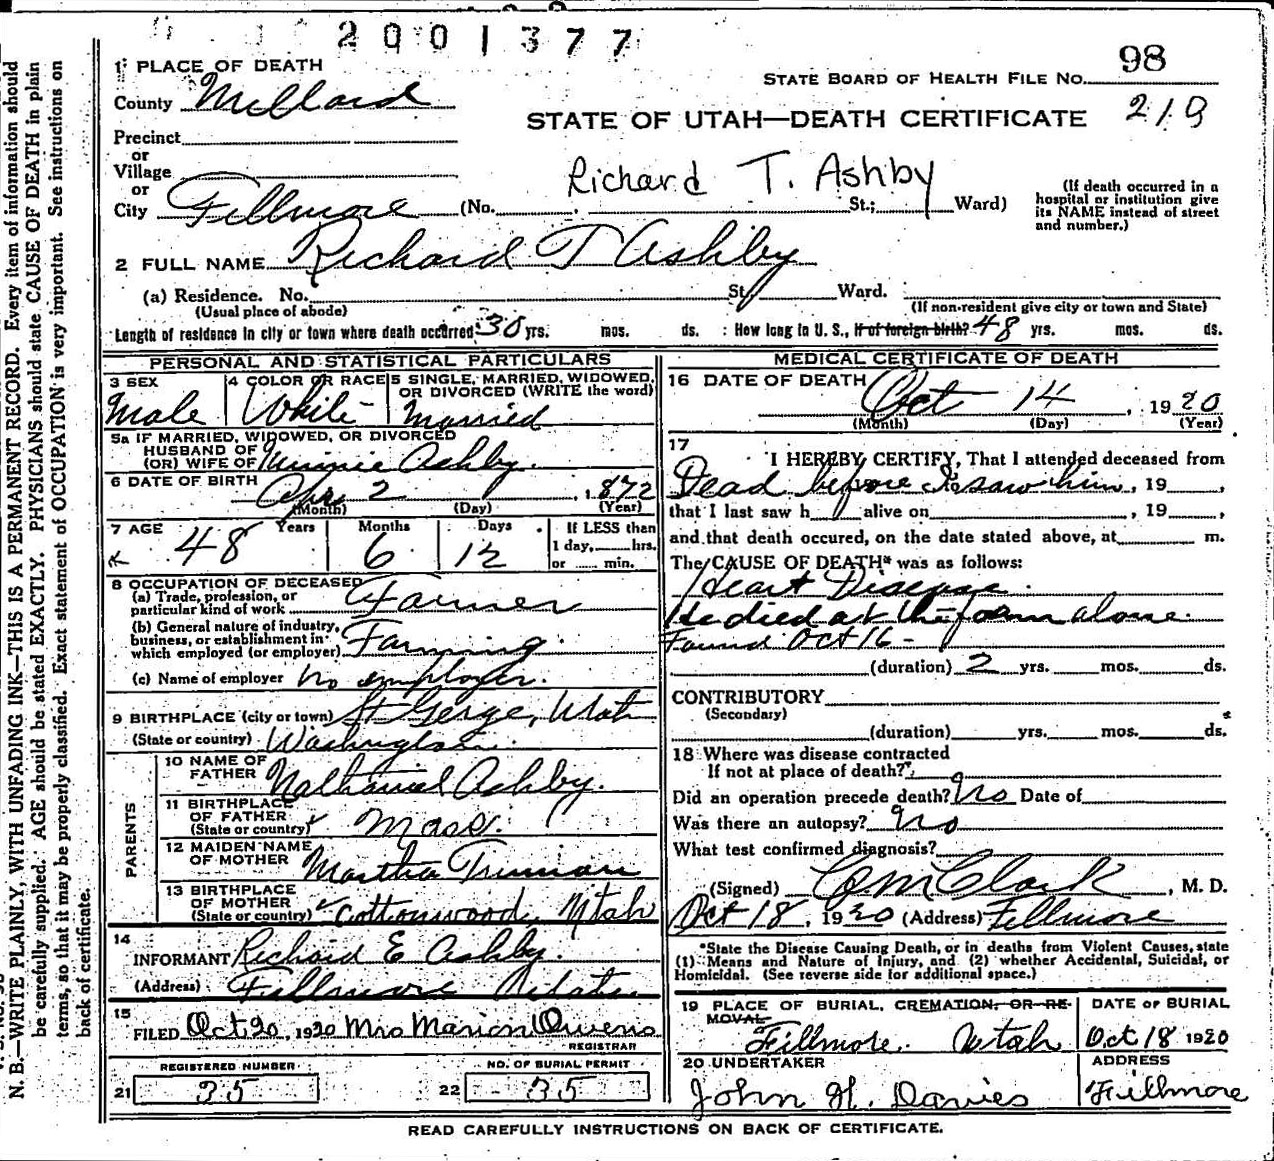 2001377
98
1 PLACE OF DEATH
STATE BOARD OF HEALTH FILE No.
County Millard
STATE OF UTAH—DEATH CERTIFICATE 219
Precinct
or
Village
or
Richard T. Ashby
City Fillmore (No. St.; Ward)
(If death occurred in a hospital or institution give its NAME instead of street and number.)
2 FULL NAME Richard T Ashby
(a) Residence. No. St. Ward.
(Usual place of abode) (If non-resident give city or town and State)
Length of residence in city or town where death occurred 30 yrs. mos. ds. : How long in U. S., if of foreign birth? 48 yrs. mos. ds.
PERSONAL AND STATISTICAL PARTICULARS
3 SEX Male
4 COLOR OR RACE White
5 SINGLE, MARRIED, WIDOWED, OR DIVORCED (WRITE the word) Married
5a IF MARRIED, WIDOWED, OR DIVORCED
HUSBAND OF
(OR) WIFE OF Minnie Ashby.
6 DATE OF BIRTH Apr 2, 1872
(Month) (Day) (Year)
7 AGE 48 Years 6 Months 12 Days
If LESS than 1 day, hrs. or min.
8 OCCUPATION OF DECEASED
(a) Trade, profession, or particular kind of work Farmer
(b) General nature of industry, business, or establishment in which employed (or employer) Farming.
(c) Name of employer no employer.
9 BIRTHPLACE (city or town) St Gerge, Utah
(State or country) Washington
PARENTS
10 NAME OF FATHER Nathaniel Ashby.
11 BIRTHPLACE OF FATHER (State or country) Mass.
12 MAIDEN NAME OF MOTHER Martha Truman
13 BIRTHPLACE OF MOTHER (State or country) Cottonwood, Utah
14
INFORMANT Richard E Ashby.
(Address) Fillmore Utah.
15
FILED Oct 20, 1920 Mrs Marion Owens
REGISTRAR
REGISTERED NUMBER
21 35
NO. OF BURIAL PERMIT
22 35
MEDICAL CERTIFICATE OF DEATH
16 DATE OF DEATH Oct 14, 1920
(Month) (Day) (Year)
17
I HEREBY CERTIFY, That I attended deceased from
Dead before I saw him, 19 ,
that I last saw h alive on , 19 ,
and that death occured, on the date stated above, at m.
The CAUSE OF DEATH* was as follows:
Heart Disease.
He died at the farm alone.
Found Oct 16-
(duration) 2 yrs. mos. ds.
CONTRIBUTORY
(Secondary)
(duration) yrs. mos. ds.
18 Where was disease contracted
If not at place of death?
Did an operation precede death? No Date of
Was there an autopsy? No
What test confirmed diagnosis?
(Signed) C M Clark, M. D.
Oct 18, 1920 (Address) Fillmore
*State the Disease Causing Death, or in deaths from Violent Causes, state
(1) Means and Nature of Injury, and (2) whether Accidental, Suicidal, or
Homicidal. (See reverse side for additional space.)
19 PLACE OF BURIAL, CREMATION, OR REMOVAL
Fillmore. Utah
DATE OF BURIAL
Oct 18 1920
20 UNDERTAKER
John H. Davies
ADDRESS
Fillmore
READ CAREFULLY INSTRUCTIONS ON BACK OF CERTIFICATE.
N. B.—WRITE PLAINLY, WITH UNFADING INK—THIS IS A PERMANENT RECORD. Every item of information should
be carefully supplied. AGE should be stated EXACTLY. PHYSICIANS should state CAUSE OF DEATH in plain
terms, so that it may be properly classified. Exact statement of OCCUPATION is very important. See instructions on
back of certificate.